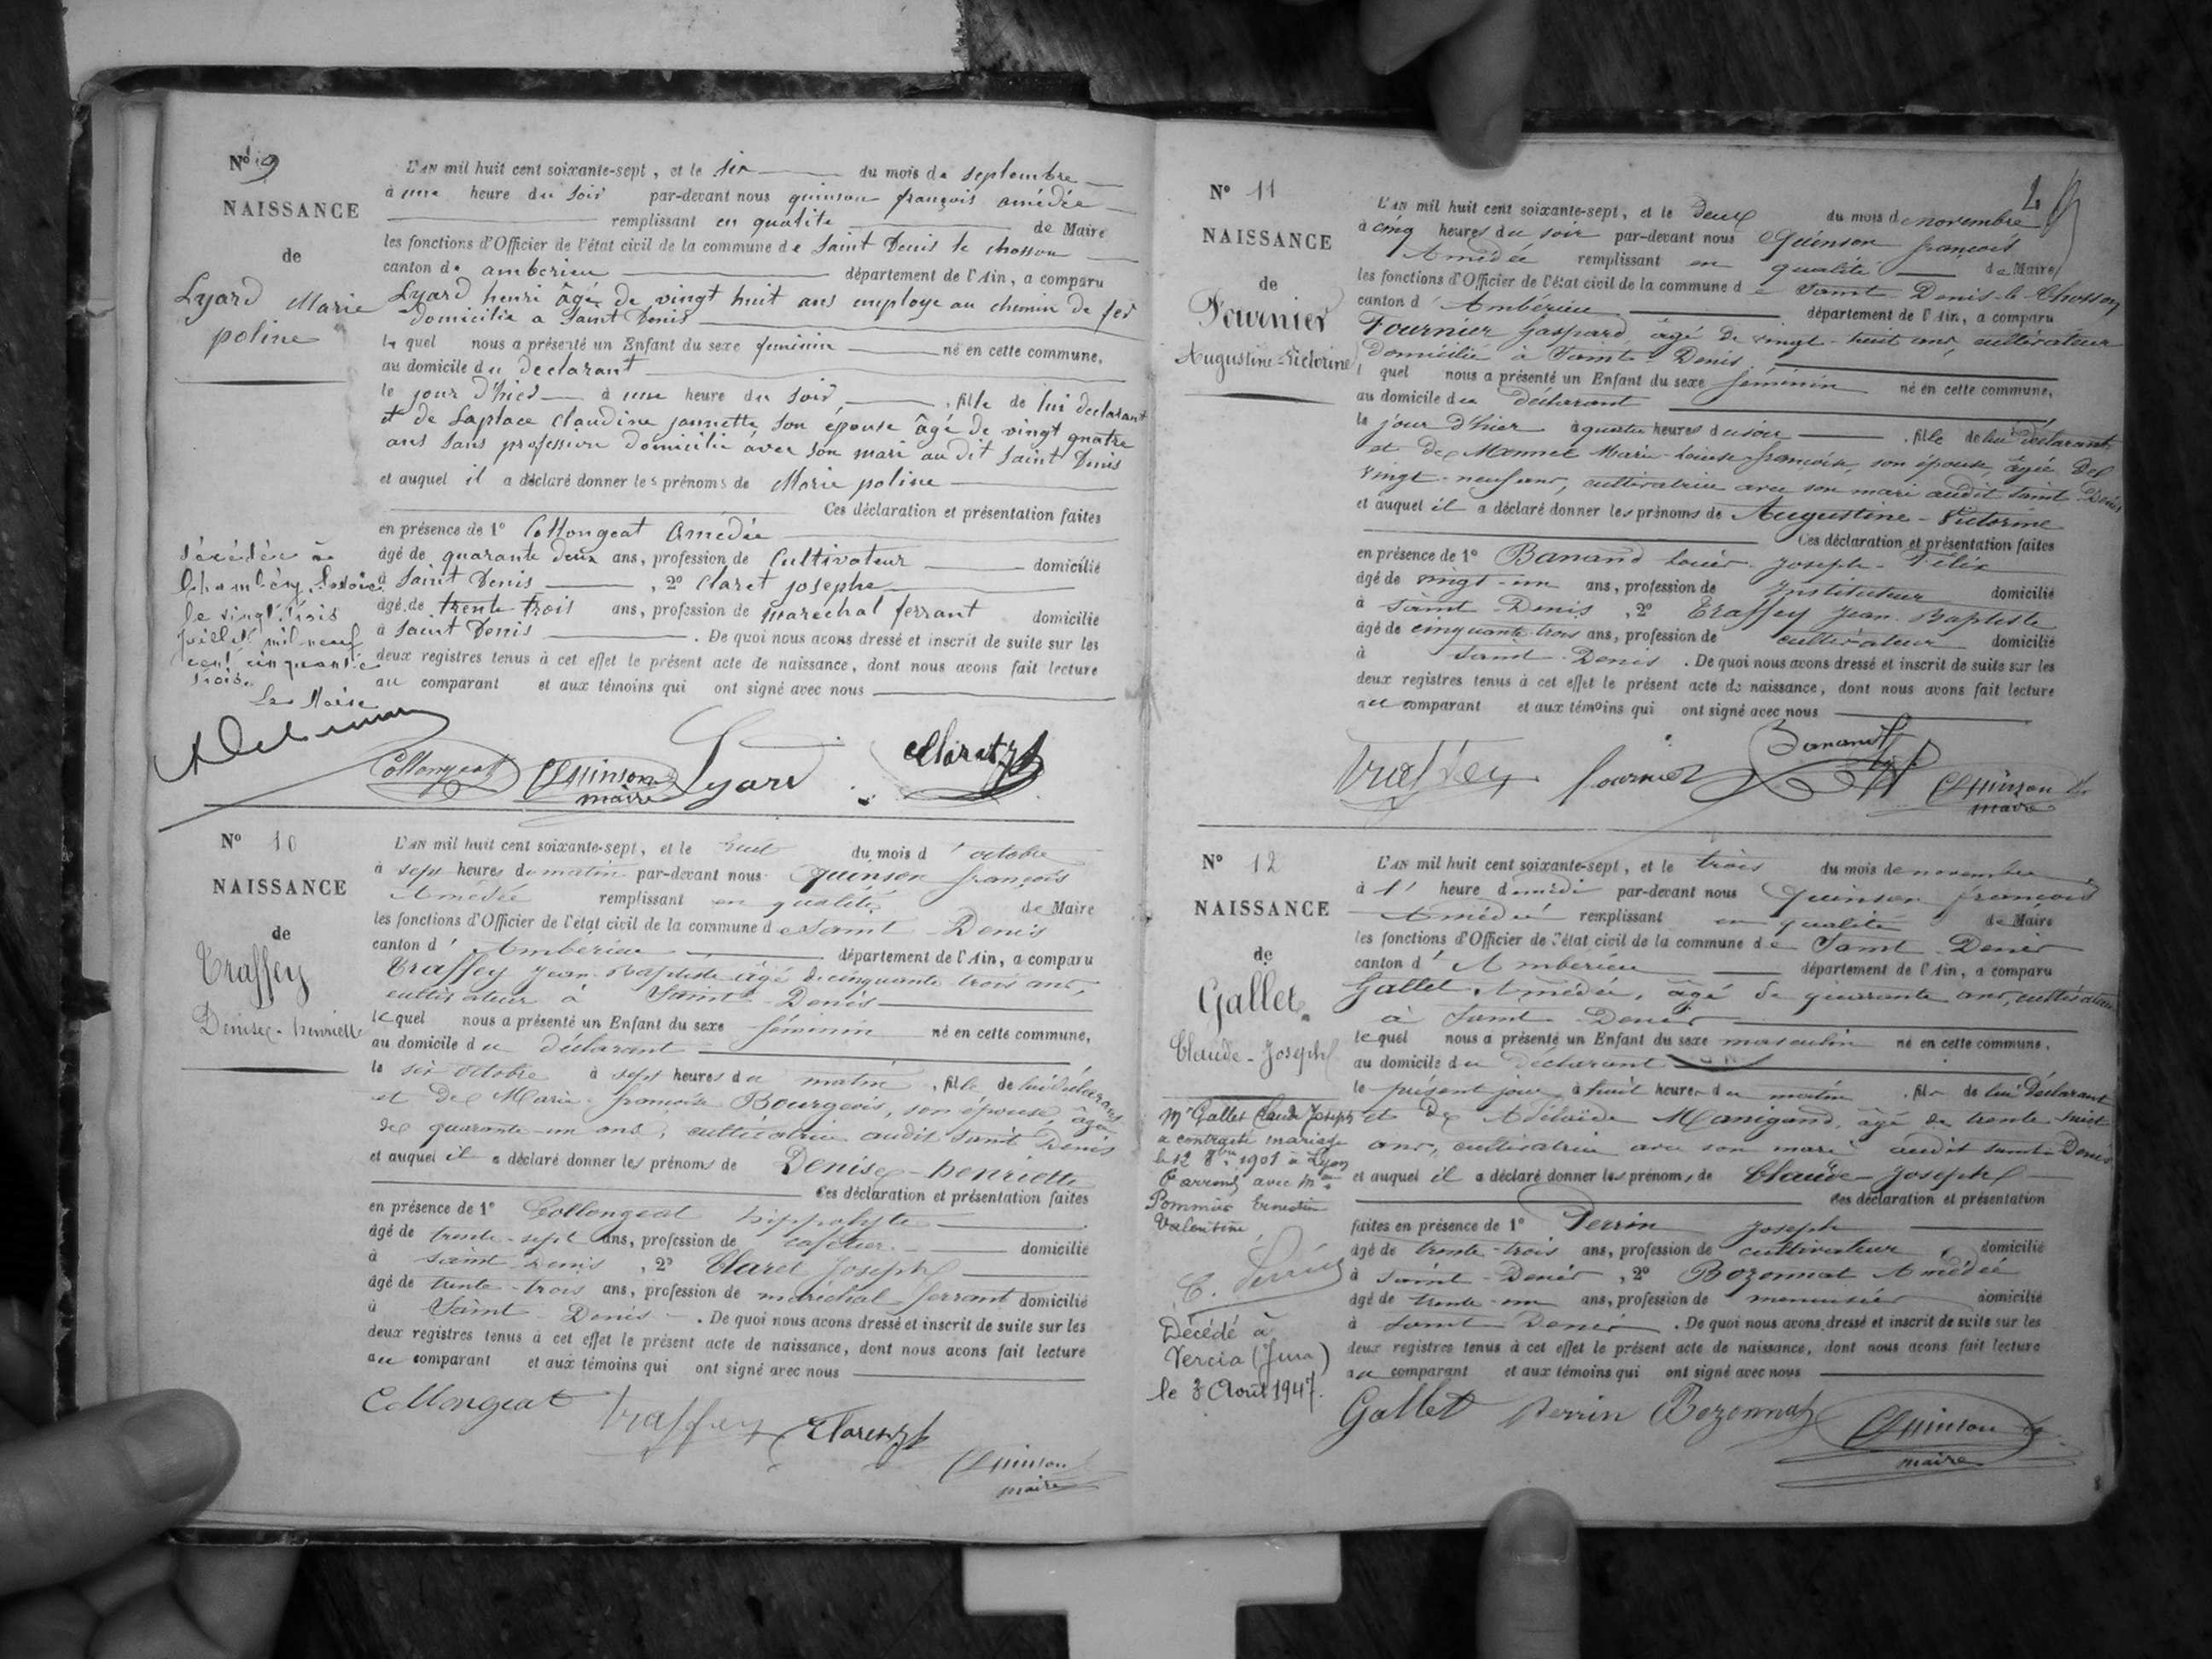 N° 9
NAISSANCE
de
Lyard Marie
poline
L'AN mil huit cent soixante-sept, et le six du mois de septembre
à une heure du soir par-devant nous quinson françois amédée
remplissant en qualité de Maire
les fonctions d'Officier de l'état civil de la commune de Saint Denis le chosson
canton de amberieu département de l'Ain, a comparu
Lyard henri âgé de vingt huit ans employe au chemin de fer
domicilié a Saint Denis
le quel nous a présenté un Enfant du sexe feminin né en cette commune,
au domicile du declarant
le jour d'hier à une heure du soir, fille de lui declarant
et de Laplace Claudine jannette son épouse âgé de vingt quatre
ans sans profession domicilié avec son mari au dit Saint Denis
et auquel il a déclaré donner les prénoms de Marie poline
Ces déclaration et présentation faites
en présence de 1° Collongeat Amédée
âgé de quarante deux ans, profession de Cultivateur domicilié
à Saint Denis, 2° Claret josephe
âgé de trente trois ans, profession de maréchal ferrant domicilié
à Saint Denis. De quoi nous avons dressé et inscrit de suite sur les
deux registres tenus à cet effet le présent acte de naissance, dont nous avons fait lecture
au comparant et aux témoins qui ont signé avec nous
décédée à
Chambéry, Savoie
le vingt trois
juillet mil neuf
cent cinquante
trois.
Le Maire
Collongeat Quinson Lyard Claret
maire
N° 10
NAISSANCE
de
Traffey
Denise-henriette
L'AN mil huit cent soixante-sept, et le huit du mois d'octobre
à sept heures du matin par-devant nous Quinson françois
Amédée remplissant en qualité de Maire
les fonctions d'Officier de l'état civil de la commune de Saint Denis
canton d'Ambérieu département de l'Ain, a comparu
Traffey Jean-Baptiste âgé de cinquante trois ans,
cultivateur à Saint-Denis
lequel nous a présenté un Enfant du sexe féminin né en cette commune,
au domicile du déclarant
le six octobre à sept heures du matin, fille de lui déclarant
et de Marie-françoise Bourgeois, son épouse, âgée
de quarante-un ans, cultivatrice audit Saint Denis
et auquel il a déclaré donner les prénoms de Denise-henriette
Ces déclaration et présentation faites
en présence de 1° Collongeat hippolyte
âgé de trente-sept ans, profession de cafetier domicilié
à Saint Denis, 2° Claret Joseph
âgé de trente-trois ans, profession de maréchal ferrant domicilié
à Saint-Denis. De quoi nous avons dressé et inscrit de suite sur les
deux registres tenus à cet effet le présent acte de naissance, dont nous avons fait lecture
au comparant et aux témoins qui ont signé avec nous
Collongeat Traffey Claret
Quinson
maire
N° 11
NAISSANCE
de
Fournier
Augustine-Victorine
L'AN mil huit cent soixante-sept, et le Deux du mois de novembre
à cinq heures du soir par-devant nous Quinson françois
Amédée remplissant en qualité de Maire
les fonctions d'Officier de l'état civil de la commune de Saint-Denis-le-Chosson
canton d'Ambérieu département de l'Ain, a comparu
Fournier Gaspard, âgé de vingt-huit ans, cultivateur
domicilié à Saint-Denis
lequel nous a présenté un Enfant du sexe féminin né en cette commune,
au domicile du déclarant
le jour d'hier à quatre heures du soir, fille de lui déclarant
et de Monnet Marie-Louise-françoise, son épouse, âgée de
vingt-neuf ans, cultivatrice avec son mari audit Saint-Denis
et auquel il a déclaré donner les prénoms de Augustine-Victorine
Ces déclaration et présentation faites
en présence de 1° Banand Louis-Joseph-Félix
âgé de vingt-un ans, profession de Instituteur domicilié
à Saint-Denis, 2° Traffey Jean-Baptiste
âgé de cinquante-trois ans, profession de cultivateur domicilié
à Saint-Denis. De quoi nous avons dressé et inscrit de suite sur les
deux registres tenus à cet effet le présent acte de naissance, dont nous avons fait lecture
au comparant et aux témoins qui ont signé avec nous
Traffey fournier Banand Quinson
maire
N° 12
NAISSANCE
de
Gallet
Claude-Joseph
L'AN mil huit cent soixante-sept, et le trois du mois de novembre
à l' heure de midi par-devant nous Quinson françois
Amédée remplissant en qualité de Maire
les fonctions d'Officier de l'état civil de la commune de Saint-Denis
canton d'Ambérieu département de l'Ain, a comparu
Gallet Amédée, âgé de quarante ans, cultivateur
à Saint-Denis
lequel nous a présenté un Enfant du sexe masculin né en cette commune,
au domicile du déclarant
le présent jour à huit heures du matin, fils de lui Déclarant
et de Adélaïde Manigand, âgé de trente-huit
ans, cultivatrice avec son mari audit Saint-Denis
et auquel il a déclaré donner les prénoms de Claude-Joseph
Ces déclaration et présentation
faites en présence de 1° Perrin Joseph
âgé de trente-trois ans, profession de cultivateur, domicilié
à Saint-Denis, 2° Bozonnat Amédée
âgé de trente-un ans, profession de menuisier domicilié
à Saint Denis. De quoi nous avons dressé et inscrit de suite sur les
deux registres tenus à cet effet le présent acte de naissance, dont nous avons fait lecture
au comparant et aux témoins qui ont signé avec nous
Mr Gallet Claude Joseph
a contracté mariage
le 12 8bre 1901 à Lyon
6e arrond avec Melle
Pommier Ernestine
Valentine,
Décédé à
Vercia (Jura)
le 3 Août 1947.
Gallet Perrin Bozonnat Quinson
maire